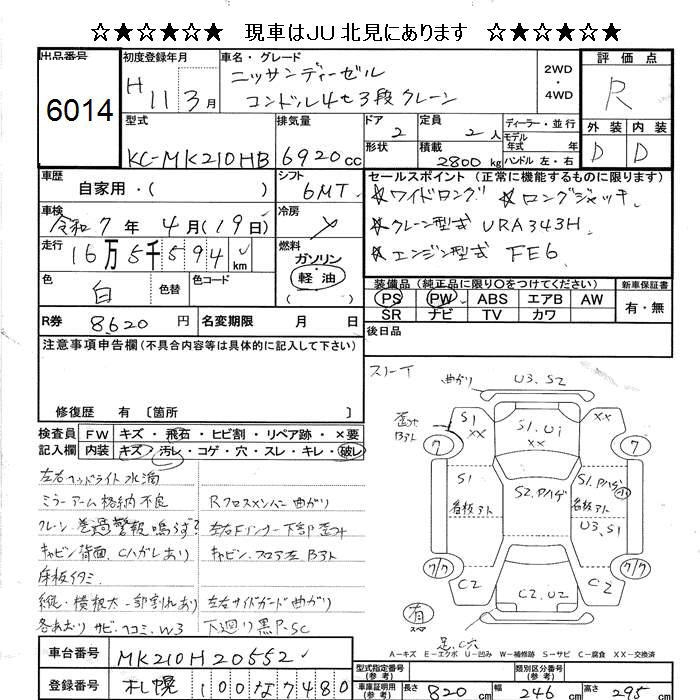 ☆★☆★☆★☆　現車はJU北見にあります　☆★☆★☆★☆
出品番号
6014
初度登録年月
H 11 3月
車名・グレード
ニッサンディーゼル
コンドル4t3段クレーン
2WD
・
4WD
評価点
R
外装 内装
D D
型式
KC-MK210HB
排気量
6920cc
ドア
2
形状
定員
2人
積載
2800kg
ディーラー・並行
モデル
年式 年
ハンドル 左・右
車歴
自家用・( )
シフト
6MT
セールスポイント (正常に機能するものに限ります)
☆ワイドロング ☆ロングジャッキ
☆クレーン型式 URA343H
☆エンジン型式 FE6
車検
令和7年4月(19日)
冷房
走行
16万5千594km
燃料
ガソリン
軽油
( )
色
白
色替
色コード
装備品 (純正品に限り○をつけてください)
PS PW ABS エアB AW
SR ナビ TV カワ
新車保証書
有・無
R券 8620円 名変期限 月 日
後日品
注意事項申告欄(不具合内容等は具体的に記入して下さい)
修復歴 有 〔箇所 〕
検査員
記入欄
FW キズ・飛石・ヒビ割・リペア跡・×要
内装 キズ・汚レ・コゲ・穴・スレ・キレ・破レ
左右ヘッドライト水滴
ミラーアーム格納不良
クレーン巻過警報鳴らず?
キャビン背面Cハガレあり
床板イタミ
縦・横根太一部割れあり
各あおりサビ、ヘコミ、W3
Rクロスメンバー曲がり
左右Fインナー下部歪み
キャビンフロア左Bアト
左右サイドガード曲がり
下廻り黒P-SC
曲がり U3.S2
S1 XX
S1.U1 XX
XX
7 7
S1
S2.Pハゲ
S1.Pハゲ 小
看板アト 看板アト
U3.S1
7/7 7/7
C2 C2.U2 C2
有
スペア
足、C穴
A-キズ E-エクボ U-凹み W-補修跡 S-サビ C-腐食 XX-交換済
車台番号 MK210H20552
登録番号 札幌 100な7480
型式指定番号
(参考)
類別区分番号
(参考)
車庫証明用
(参考)
長さ 820cm 幅 246cm 高さ 295cm